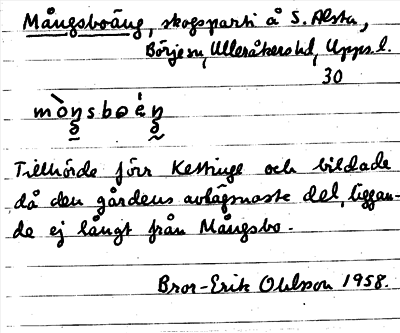 Mångsboäng, skogsparti å S. Alsta,
Börje sn, Ulleråkers hd, Upps. l.
30
mòŋsboèŋ
Tillhörde förr Kettinge och bildade
då den gårdens avlägsnaste del, liggan-
de ej långt från Mångsbo.
Bror-Erik Ohlsson 1958.